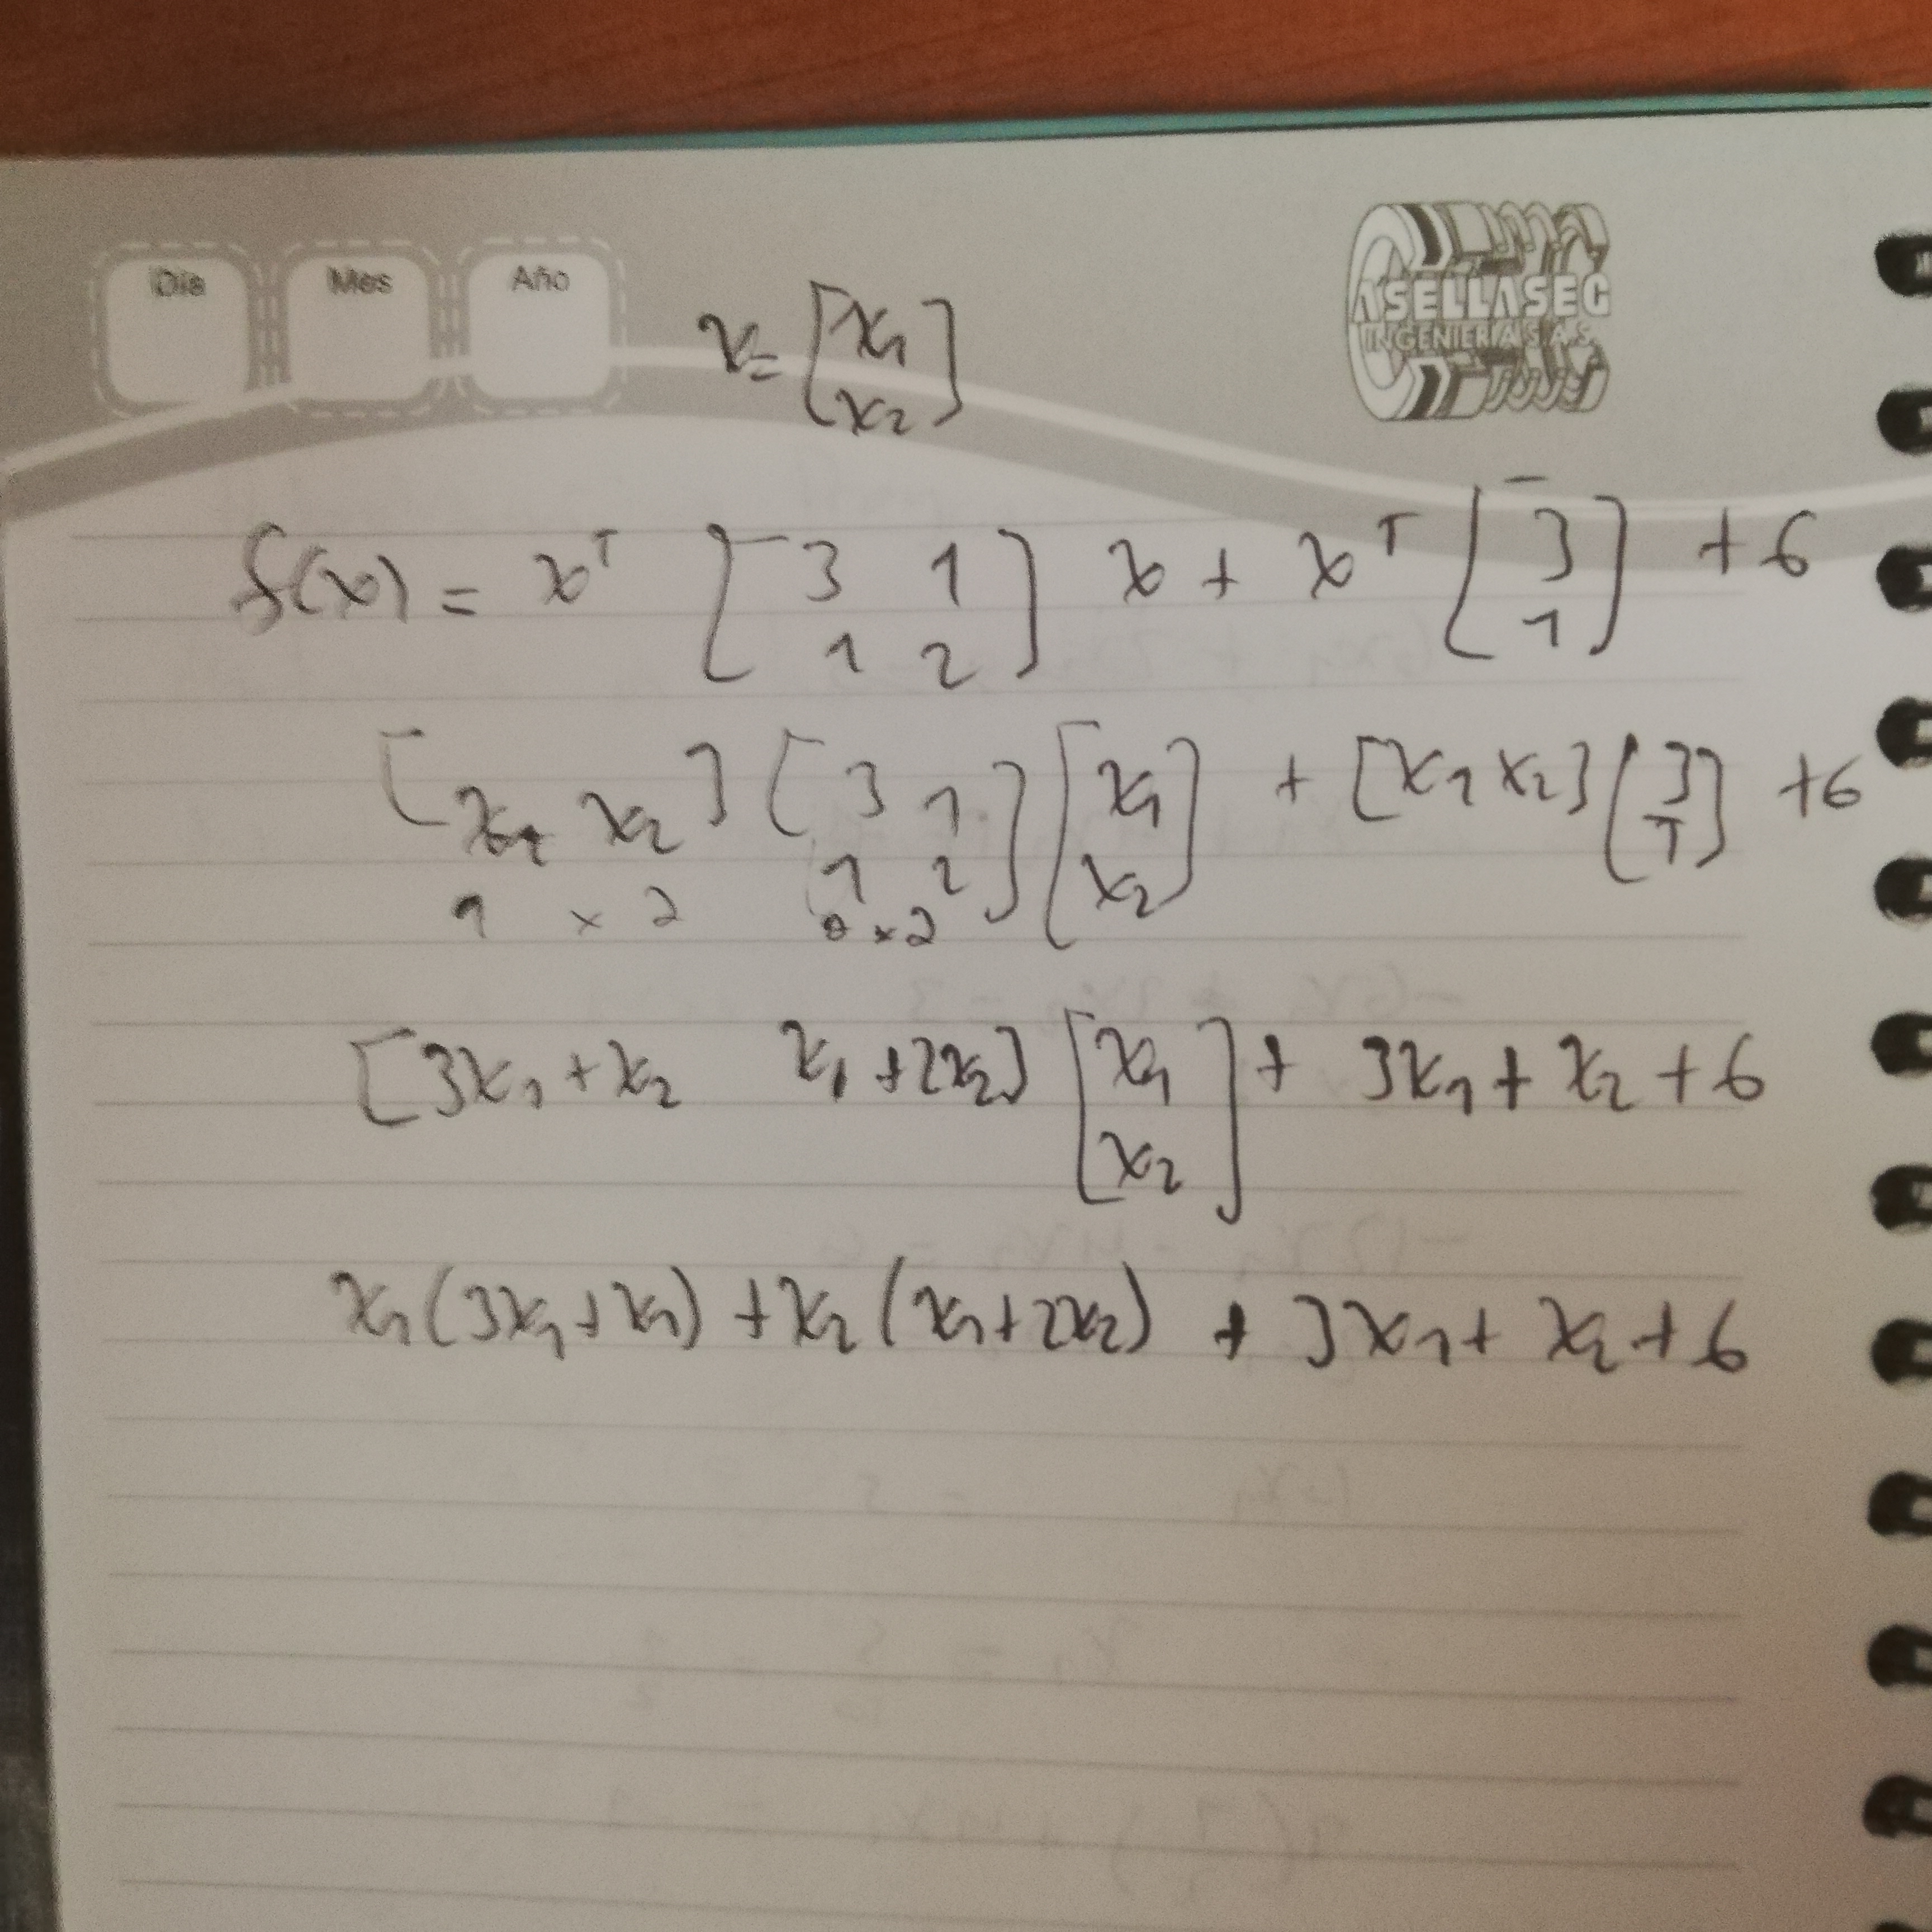 Día Mes Año
ASELLASEG
INGENIERIA S.A.S.
x = [x₁
x₂]
f(x) = xᵀ [3 1
1 2] x + xᵀ [3
1] + 6
[x₁ x₂] [3 1
1 2] [x₁
x₂] + [x₁ x₂] [3
1] + 6
1 x 2 2 x 2
[3x₁ + x₂ x₁ + 2x₂] [x₁
x₂] + 3x₁ + x₂ + 6
x₁(3x₁ + x₁) + x₂(x₁ + 2x₂) + 3x₁ + x₂ + 6